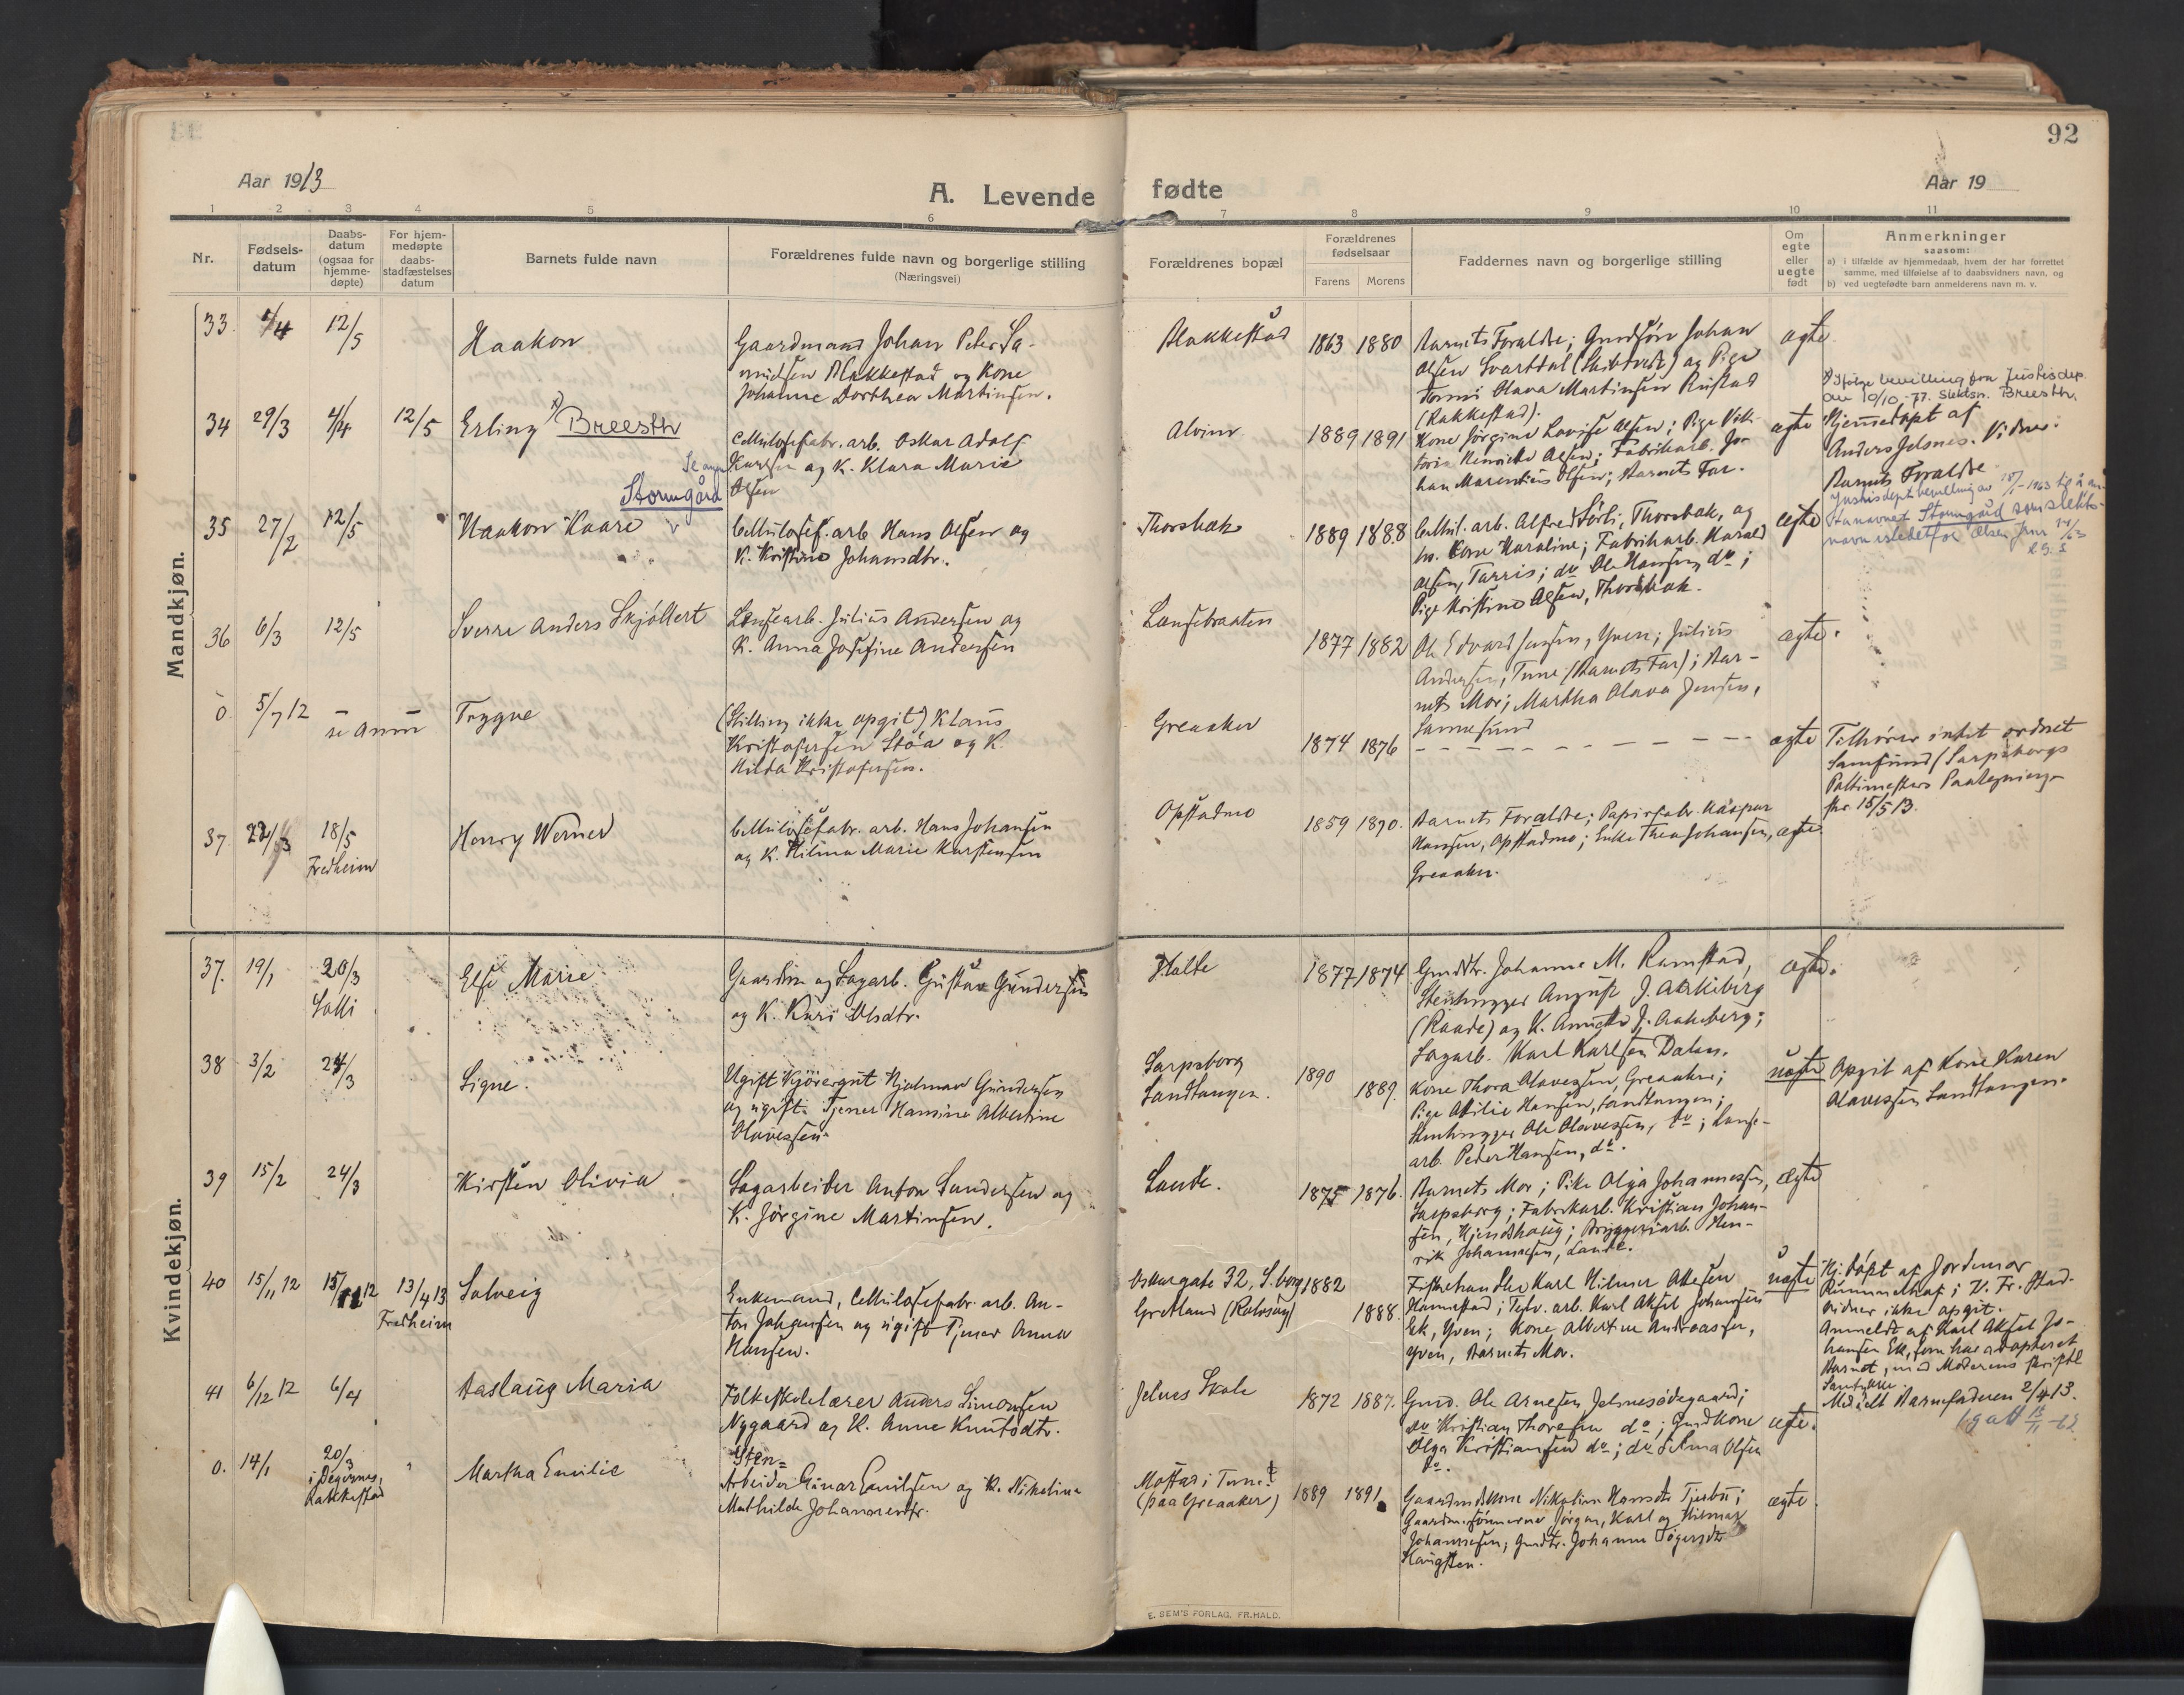 92
Aar 1913
A. Levende fødte
Aar 19
1 2 3 4 5 6 7 8 9 10 11
Nr.
Fødsels-
datum
Daabs-
datum
(ogsaa for
hjemme-
døpte)
For hjem-
medøpte
daabs-
stadfæstelses
datum
Barnets fulde navn
Forældrenes fulde navn og borgerlige stilling
(Næringsvei)
Forældrenes bopæl
Forældrenes
fødselsaar
Farens Morens
Faddernes navn og borgerlige stilling
Om
egte
eller
uegte
født
Anmerkninger
saasom:
a) i tilfælde av hjemmedaab, hvem der har forrettet
samme, med tilføielse af to daabsvidners navn, og
b) ved uegtefødte barn anmelderens navn m. v.
Mandkjøn.
33 1/4 12/5
Haakon
Gaardmand Johan Peter Sa-
muelsen Blakkestad og Kone
Johanne Dorthea Martinsen.
Blakkestad
1863 1880
Barnets Forældre; Gmdsøn Johan
Olsen Svartdal (Skibtvedt) og Pige
Olava Martinsen Rustad
(Rakkestad).
ægte
34 29/3 4/4 12/5
Erling x) Breesth
Cellulosefabr. arb. Oskar Adolf
Karlsen og K. Klara Marie
Olsen
Alvim
1889 1891
Kone Jørgine Lovise Olsen; Pige Vik-
toria Henriette Olsen; Fabrikarb. Jo-
han Marentius Olsen; Barnets Far.
ægte
x) Ifølge bevilling fra Justisdep.
av 10/10-77. Slektsn. Breesth.
Hjemmedøpt af
Anders Jelsnes. Vidner:
Barnets Forældre
35 27/2 12/5
Haakon Kaare
Se anm
Stormgård
Cellulosef. arb. Hans Olsen og
K. Kristine Johansdtr.
Thorsbæk
1889 1888
Cellul. arb. Alfred Sørli, Thorsbæk, og
h. Kone Karoline; Fabrikarb. Harald
Olsen, Tarris; do Ole Hansen, do;
Pige Kristine Olsen, Thorsbæk.
ægte
Justisdepts bevilling av 18/1-1963 til å an-
ta navnet Stormgård som slekts-
navn istedetfor Olsen
36 6/3 12/5
Sverre Anders Skjøllert
Lensearb. Julius Andersen og
K. Anna Josefine Andersen
Lensebraaten
1877 1882
Ole Edvard Jensen, Yven; Julius
Andersen, Tune (Barnets Far); Bar-
nets Mor; Martha Olava Jensen,
Sannesund
ægte.
0 5/7 12 se anm
Trygve
(Stilling ikke opgit) Klaus
Kristofersen Stöa og K.
Hilda Kristofersen.
Greaaker
1874 1876
ægte
Tilhører intet ordnet
Samfund (Sarpsborgs
Politimesters Paategning
skr. 15/5 13.
37 22/3 18/5
Fredheim
Henry Werner
Cellulosefabr. arb. Hans Johansen
og K. Hilma Marie Karstensen
Opstadmo
1859 1870.
Barnets Forældre; Papirfabr. Kaspar
Hansen, Opstadmo; Enke Thea Johansen,
Greaaker.
ægte
Kvindekjøn.
37. 19/1 20/3
Solli
Else Marie
Gaardm. og Sagarb. Gustav Gundersen
og K. Kari Olsdtr.
Holte
1877 1874
Gmddtr. Johanne M. Ramstad,
Stenhugger August J. Aakeberg
(Raade) og K. Annette J. Aakeberg;
Sagarb. Karl Karlsen Dalen.
ægte.
38 3/2 24/3
Signe.
Ugift Kjörergut Hjalmar Gundersen
og ugift Tjener Hansine Albertine
Olavessen.
Sarpsborg
Sandtangen.
1890 1889.
Kone Thora Olavessen, Greaaker;
Pige Otilie Hansen, Sandtangen;
Stenhugger Ole Olavessen, do; Lense-
arb. Peder Hansen, do.
uægte
Opgit af Kone Karen
Olavessen Sandtangen.
39 15/2 24/3
Kirsten Olivia
Sagarbeider Anton Gundersen og
K. Jørgine Martinsen.
Lande.
1875 1876.
Barnets Mor; Pike Olga Johannessen,
Sarpsborg; Fabrikarb. Kristian Johan-
sen, Hjendshaug; Bryggeriarb. Hen-
rik Johannesen, Lande.
ægte
40 15/11 12 15/12 12 13/4 13
Fredheim
Solveig
Enkemand, Cellulosefabr. arb. An-
ton Johansen og ugift Tjener Anna
Hansen.
Oskargate 32, S.borg
Gretland (Rolvsøy)
1882 1888.
Fiskehandler Karl Hilmer Olsen
Hannestad; Tegv. arb. Karl Aksel Johansen
Ek, Yven; Kone Albertine Andreassen,
Yven, Barnets Mor.
uægte
Hj. døpt af Jordemor
i V. Fr.stad.
Vidner ikke opgit.
Anmeldt af Karl Aksel Jo-
hansen Ek, som har adopteret
Barnet, med Moderens skriftl
Samtykke.
Meddelt Barnefaderen 2/4 13.
41 6/12 12 6/4
Aaslaug Maria
Folkeskolelærer Anders Simonsen
Nygaard og K. Anne Knutsdtr.
Jelnes Skole
1872 1887.
Gmd. Ole Arnesen Jelnesødegaard;
do Kristian Thoresen do; Gmdkone
Olga Kristiansen do; do Selma Olsen
do.
ægte.
0. 14/1 20/3
i Degernes,
Rakkestad
Martha Emilie
Sten-
Arbeider Einar Emilsen og K. Nikoline
Mathilde Johannesdtr.
Mostad i Tune
(paa Greaaker)
1889 1891
Gaardmdkone Nikoline Hansdtr Tjerbu;
Gaardmsönnerne Jørgen, Karl og Hilmar
Johannesen; Gmdtr. Johanne
Haugsten.
ægte.
E. SEM'S FORLAG, FR.HALD.